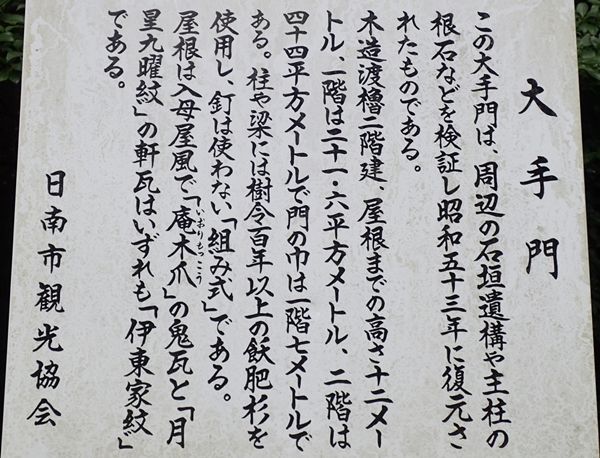 大手門
この大手門は、周辺の石垣遺構や主柱の
根石などを検証し昭和五十三年に復元さ
れたものである。
木造渡櫓二階建、屋根までの高さ十二メー
トル、一階は二十一・六平方メートル、二階は
四十四平方メートルで門の巾は一階七メートルで
ある。柱や梁には樹令百年以上の飫肥杉を
使用し、釘は使わない「組み式」である。
屋根は入母屋風で「庵木爪」の鬼瓦と「月
いおりもっこう
星九曜紋」の軒瓦はいずれも「伊東家紋」
である。
日南市観光協会